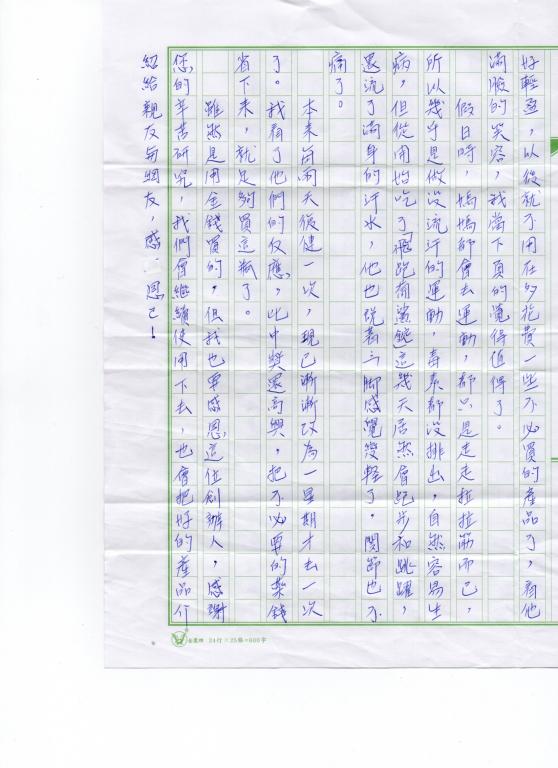 好輕盈，以後就不用在多花費一些不必買的產品了，看他
滿臉的笑容，我當下真的覺得值得了。
假日時，媽媽都會去運動，都只是走走拉拉筋而已，
所以幾乎是做沒流汗的運動，毒素都沒排出，自然容易生
病，但從開始吃了飛跑葡鯊錠這幾天居然會跑步和跳躍，
還流了滿身的汗水，他也說著：腳感覺變輕了。關節也不
痛了。
本來每兩天復健一次，現已漸漸改為一星期才去一次
了。我看了他們的反應，比中獎還高興，把不必要的藥錢
省下來，就足夠買這瓶了。
雖然是用金錢買的，但我也要感恩這位創辦人，感謝
您的辛苦研究，我們會繼續使用下去，也會把好的產品介
紹給親友與網友，感 恩己！
24行×25格=600字